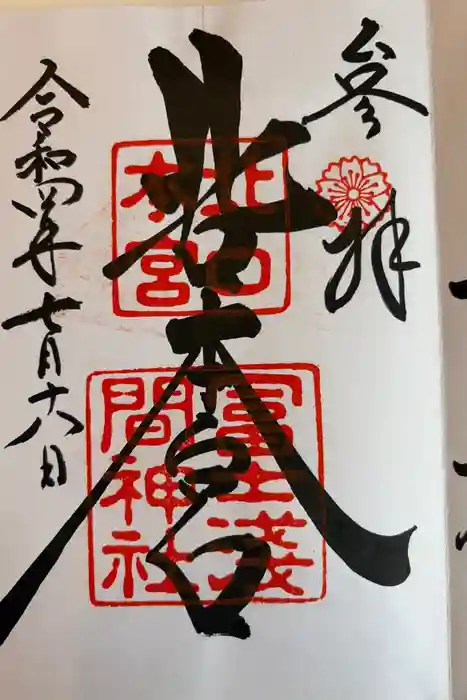 參拝
北口本宮
北口
本宮
冨士淺
間神社
令和四年七月十六日